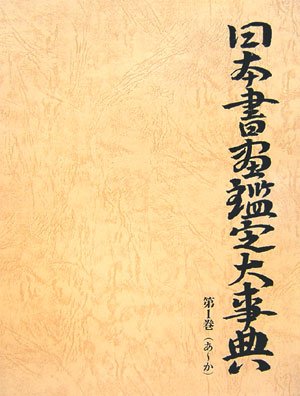 日本書画鑑定大事典
第1巻(あ〜か)